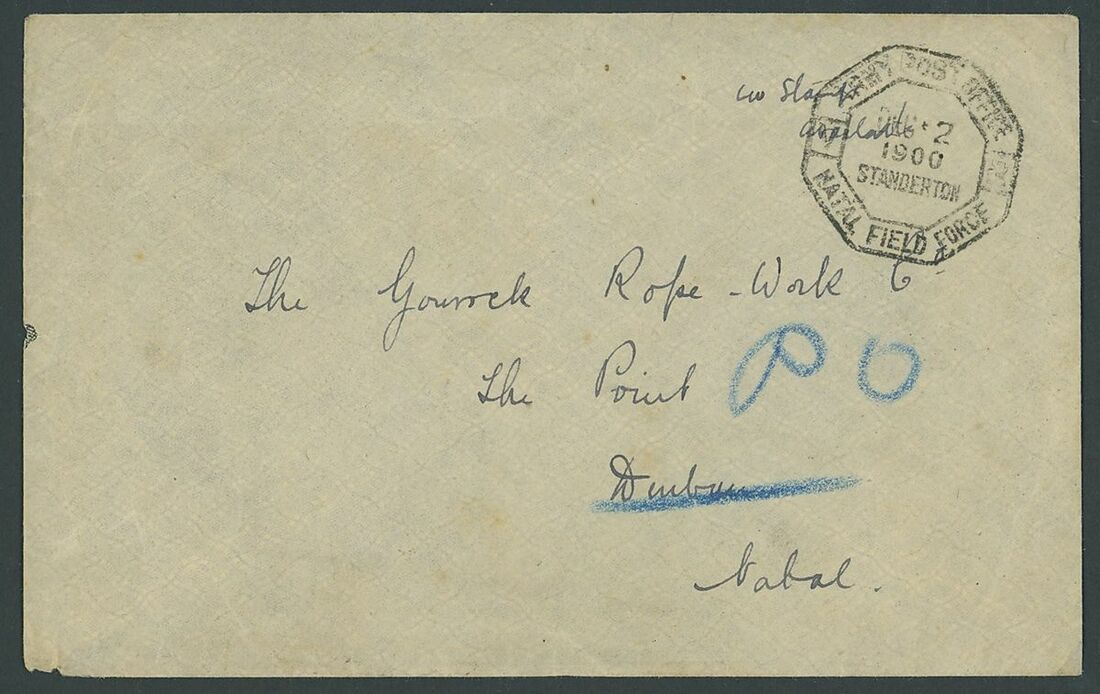 no Stamps
available
ARMY POST OFFICE
2
1900
STANDERTON
NATAL FIELD FORCE
The Gourock Rope-Work Co
The Point
P O
Durban
Natal.